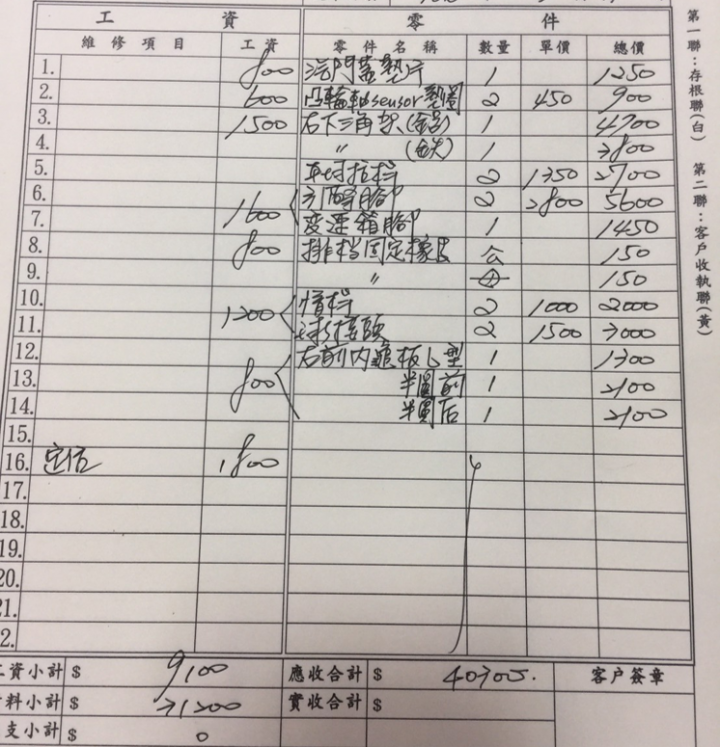 工 資 零 件
維 修 項 目 工 資 零 件 名 稱 數量 單價 總價
1. 800 汽門蓋墊片 1 1250
2. 600 凸輪軸sensor墊圈 2 450 900
3. 1500 右下三角架(鋁) 1 4700
4. 〃 (鐵) 1 3800
5. 拉桿 2 1350 2700
6. 引擎腳 2 2800 5600
7. 1600 変速箱腳 1 1450
8. 800 排档固定橡皮 150
9. 〃 150
10. 惰桿 2 1000 2000
11. 1200 接頭 2 1500 3000
12. 右前內龜板L型 1 1300
13. 800 半圓前 1 2100
14. 半圓后 1 2100
15.
16. 定位 1800
17.
18.
19.
20.
21.
2.
工資小計 $ 9100 應收合計 $ 40300. 客戶簽章
料小計 $ 31200 實收合計 $
支小計 $ 0
第一聯:存根聯(白) 第二聯:客戶收執聯(黃)